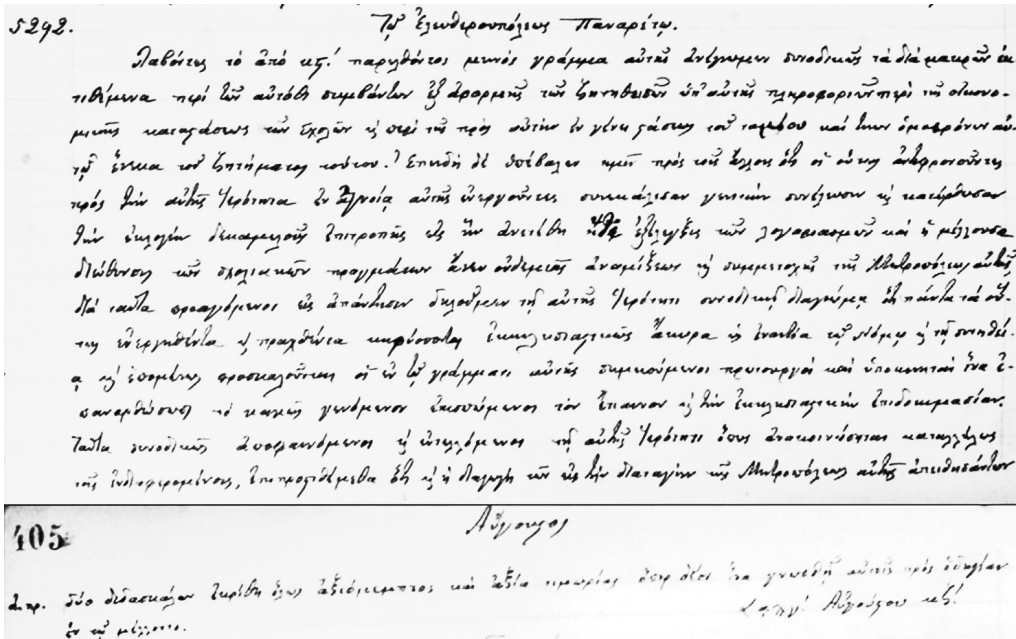 5292. Τῷ Ἐλευθερουπόλεως Παναρέτῳ.
Λαβόντες τὸ ἀπὸ κζ΄. παρελθόντος μηνὸς γράμμα αὐτῆς ἀνέγνωμεν συνοδικῶς τὰ διὰ μακρῶν ἐκ-
τιθέμενα περὶ τῶν αὐτόθι συμβάντων ἐξ ἀφορμῆς τῶν ζητηθεισῶν ὑπ' αὐτῆς πληροφοριῶν περὶ τῆς οἰκονο-
μικῆς καταστάσεως τῶν σχολῶν καὶ περὶ τῆς πρὸς αὐτὴν ἐν γένει στάσεως τοῦ καὶ τῶν ὁμοφρόνων αὐ-
τῷ ἕνεκα τοῦ ζητήματος τούτου. Ἐπειδὴ δὲ ὑπέβαλεν ἡμῖν πρὸς τοῖς ἄλλοις ὅτι οἱ οὕτως ἀντιφρονοῦντες
πρὸς τὴν αὐτῆς Ἱερότητα ἐν ἀγνοίᾳ αὐτῆς ἐνεργοῦντες συνεκάλεσαν γενικὴν συνέλευσιν καὶ κατώρθωσαν
τὴν ἐκλογὴν δεκαμελοῦς Ἐπιτροπῆς εἰς ἣν ἀνετέθη ἐξέλεγξις τῶν λογαριασμῶν καὶ ἡ μέλλουσα
διεύθυνσις τῶν σχολικῶν πραγμάτων ἄνευ οὐδεμιᾶς ἀναμίξεως καὶ συμμετοχῆς τῆς Μητροπόλεως αὐτῆς,
διὰ ταῦτα προαγόμενοι εἰς ἀπάντησιν δηλοῦμεν τῇ αὐτῆς Ἱερότητι συνοδικῇ διαγνώμῃ ὅτι πάντα τὰ οὕ-
τως ἐνεργηθέντα καὶ πραχθέντα κηρύσσονται Ἐκκλησιαστικῶς ἄκυρα καὶ ἐναντία τῷ Νόμῳ καὶ τῇ συνηθεί-
ᾳ καὶ ἑπομένως προσκαλοῦνται οἱ ἐν τῷ γράμματι αὐτῆς σημειούμενοι πρωτουργοὶ καὶ ὑποκινηταὶ ἵνα ἐ-
πανορθώσωσι τὸ κακῶς γενόμενον ἐπισπώμενοι τὸν ἔπαινον καὶ τὴν ἐκκλησιαστικὴν ἐπιδοκιμασίαν.
Ταῦτα συνοδικῶς ἀποφαινόμενοι καὶ ἐντελλόμενοι τῇ αὐτῆς Ἱερότητι ὅπως ἀνακοινώσηται καταλλήλως
τοῖς ἐνδιαφερομένοις, ἐπιπροστιθέμεθα ὅτι καὶ ἡ διαγωγὴ τῶν εἰς τὴν διαταγὴν τῆς Μητροπόλεως αὐτῆς ἀπειθησάντων
405 Αὔγουστος
δύο διδασκάλων ἐκρίθη ὅλως ἀξιόμεμπτος καὶ ἀξία τιμωρίας ὅπερ δέον ἵνα γνωσθῇ αὐτοῖς πρὸς ὁδηγίαν
ἐν τῷ μέλλοντι. Αὐγούστου κζ΄.